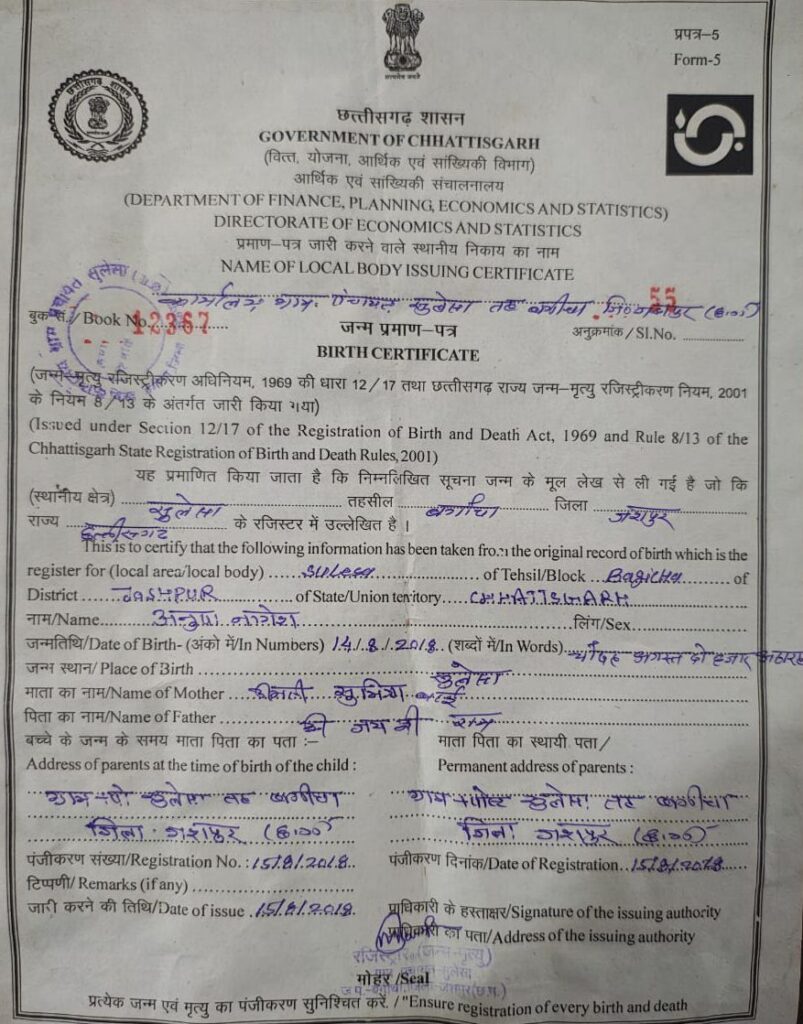 प्रपत्र–5
Form-5
सत्यमेव जयते
छत्तीसगढ़ शासन
छत्तीसगढ़ शासन
GOVERNMENT OF CHHATTISGARH
(वित्त, योजना, आर्थिक एवं सांख्यिकी विभाग)
आर्थिक एवं सांख्यिकी संचालनालय
(DEPARTMENT OF FINANCE, PLANNING, ECONOMICS AND STATISTICS)
DIRECTORATE OF ECONOMICS AND STATISTICS
प्रमाण–पत्र जारी करने वाले स्थानीय निकाय का नाम
NAME OF LOCAL BODY ISSUING CERTIFICATE
कार्यालय ग्राम पंचायत सुलेसा तह बगीचा जि० जशपुर (छ.ग.)
बुक सं./ Book No. 12367 अनुक्रमांक / Sl.No. 55
जन्म प्रमाण–पत्र
BIRTH CERTIFICATE
(जन्म–मृत्यु रजिस्ट्रीकरण अधिनियम, 1969 की धारा 12/17 तथा छत्तीसगढ़ राज्य जन्म–मृत्यु रजिस्ट्रीकरण नियम, 2001
के नियम 8/13 के अंतर्गत जारी किया गया)
(Issued under Section 12/17 of the Registration of Birth and Death Act, 1969 and Rule 8/13 of the
Chhattisgarh State Registration of Birth and Death Rules, 2001)
यह प्रमाणित किया जाता है कि निम्नलिखित सूचना जन्म के मूल लेख से ली गई है जो कि
(स्थानीय क्षेत्र) सुलेसा तहसील बगीचा जिला जशपुर
राज्य छत्तीसगढ़ के रजिस्टर में उल्लेखित है ।
This is to certify that the following information has been taken from the original record of birth which is the
register for (local area/local body) sulesa of Tehsil/Block Bagicha of
District JASHPUR of State/Union territory CHHATTISGARH
नाम/Name लिंग/Sex
जन्मतिथि/Date of Birth- (अंको में/In Numbers) 14/8/2018 (शब्दों में/In Words) चौदह अगस्त दो हजार अठारह
जन्म स्थान/ Place of Birth सुलेसा
माता का नाम/Name of Mother श्रीमती सुमित्रा बाई
पिता का नाम/Name of Father श्री जय श्री राम
बच्चे के जन्म के समय माता पिता का पता :– माता पिता का स्थायी पता/
Address of parents at the time of birth of the child : Permanent address of parents :
ग्राम+पो० सुलेसा तह बगीचा ग्राम+पोस्ट सुलेसा तह बगीचा
जिला जशपुर (छ.ग.) जिला जशपुर (छ.ग.)
पंजीकरण संख्या/Registration No. : 15/8/2018 पंजीकरण दिनांक/Date of Registration 15/8/2018
टिप्पणी/ Remarks (if any)
जारी करने की तिथि/Date of issue 15/8/2018 प्राधिकारी के हस्ताक्षर/Signature of the issuing authority
प्राधिकारी का पता/Address of the issuing authority
रजिस्ट्रार (जन्म-मृत्यु)
मोहर /Seal
प्रत्येक जन्म एवं मृत्यु का पंजीकरण सुनिश्चित करें. / "Ensure registration of every birth and death